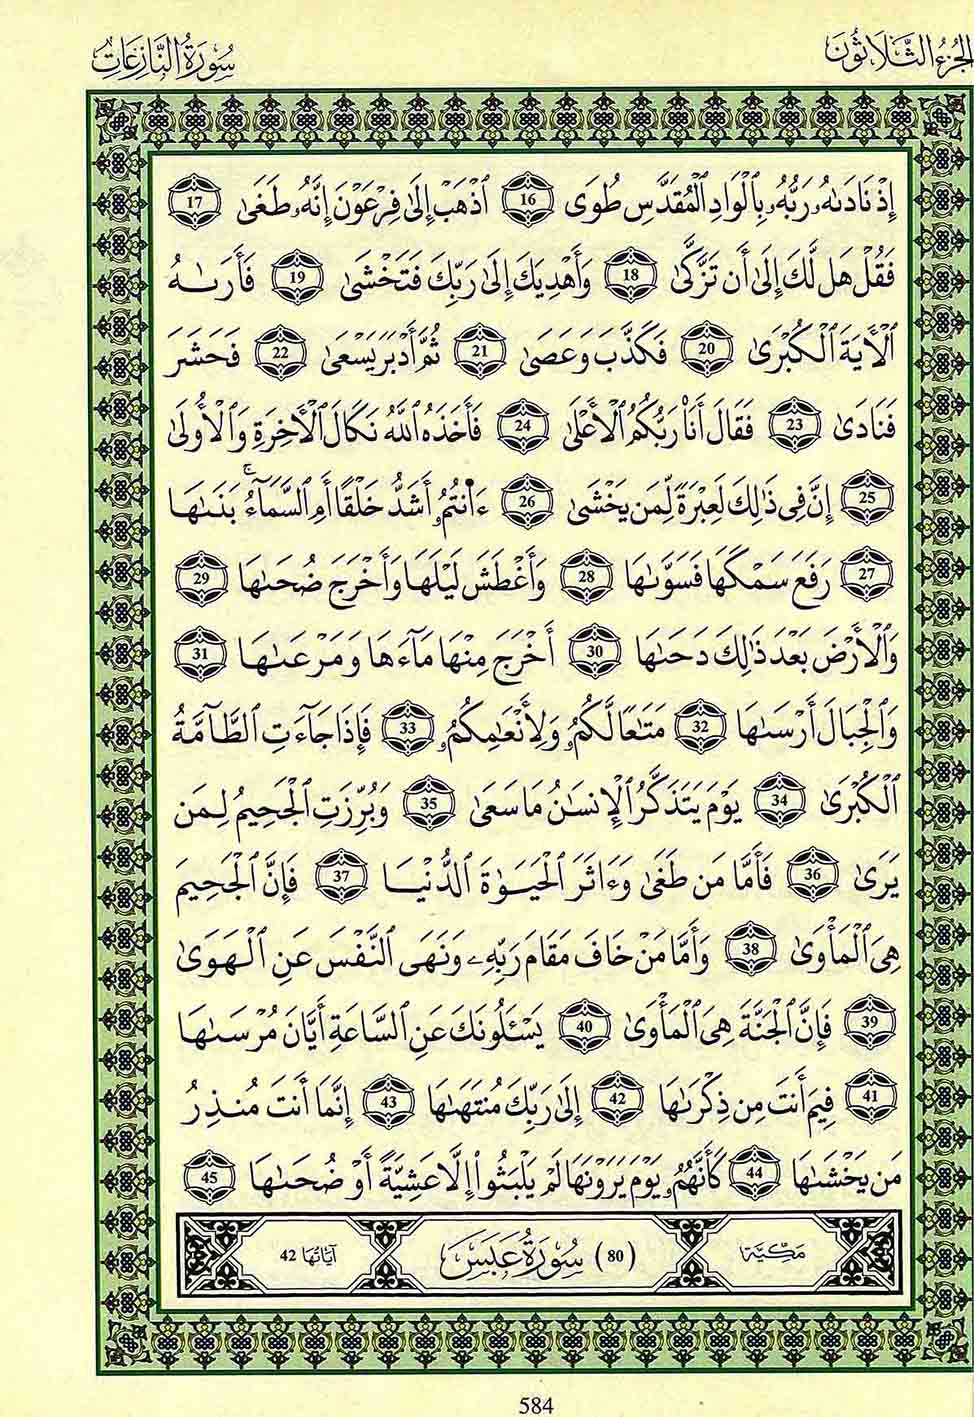 الجزء الثلاثون
سورة النازعات
إِذْ نَادَىٰهُۥ رَبُّهُۥ بِٱلْوَادِ ٱلْمُقَدَّسِ طُوَى 16 ٱذْهَبْ إِلَىٰ فِرْعَوْنَ إِنَّهُۥ طَغَىٰ 17
فَقُلْ هَل لَّكَ إِلَىٰ أَن تَزَّكَّىٰ 18 وَأَهْدِيَكَ إِلَىٰ رَبِّكَ فَتَخْشَىٰ 19 فَأَرَىٰهُ
ٱلْأٓيَةَ ٱلْكُبْرَىٰ 20 فَكَذَّبَ وَعَصَىٰ 21 ثُمَّ أَدْبَرَ يَسْعَىٰ 22 فَحَشَرَ
فَنَادَىٰ 23 فَقَالَ أَنَا۠ رَبُّكُمُ ٱلْأَعْلَىٰ 24 فَأَخَذَهُ ٱللَّهُ نَكَالَ ٱلْأٓخِرَةِ وَٱلْأُولَىٰ
25 إِنَّ فِى ذَٰلِكَ لَعِبْرَةً لِّمَن يَخْشَىٰ 26 ءَا۬نتُمُۥ أَشَدُّ خَلْقًا أَمِ ٱلسَّمَآءُ ۚ بَنَىٰهَا
27 رَفَعَ سَمْكَهَا فَسَوَّىٰهَا 28 وَأَغْطَشَ لَيْلَهَا وَأَخْرَجَ ضُحَىٰهَا 29
وَٱلْأَرْضَ بَعْدَ ذَٰلِكَ دَحَىٰهَا 30 أَخْرَجَ مِنْهَا مَآءَهَا وَمَرْعَىٰهَا 31
وَٱلْجِبَالَ أَرْسَىٰهَا 32 مَتَٰعًا لَّكُمُۥ وَلِأَنْعَٰمِكُمُۥ 33 فَإِذَا جَآءَتِ ٱلطَّآمَّةُ
ٱلْكُبْرَىٰ 34 يَوْمَ يَتَذَكَّرُ ٱلْإِنسَٰنُ مَا سَعَىٰ 35 وَبُرِّزَتِ ٱلْجَحِيمُ لِمَن
يَرَىٰ 36 فَأَمَّا مَن طَغَىٰ وَءَاثَرَ ٱلْحَيَوٰةَ ٱلدُّنْيَا 37 فَإِنَّ ٱلْجَحِيمَ
هِىَ ٱلْمَأْوَىٰ 38 وَأَمَّا مَنْ خَافَ مَقَامَ رَبِّهِۦ وَنَهَى ٱلنَّفْسَ عَنِ ٱلْهَوَىٰ
39 فَإِنَّ ٱلْجَنَّةَ هِىَ ٱلْمَأْوَىٰ 40 يَسْـَٔلُونَكَ عَنِ ٱلسَّاعَةِ أَيَّانَ مُرْسَىٰهَا
41 فِيمَ أَنتَ مِن ذِكْرَىٰهَا 42 إِلَىٰ رَبِّكَ مُنتَهَىٰهَا 43 إِنَّمَا أَنتَ مُنذِرُ
مَن يَخْشَىٰهَا 44 كَأَنَّهُمُۥ يَوْمَ يَرَوْنَهَا لَمْ يَلْبَثُوٓا۟ إِلَّا عَشِيَّةً أَوْ ضُحَىٰهَا 45
مكية (80) سورة عبس آياتها 42
584